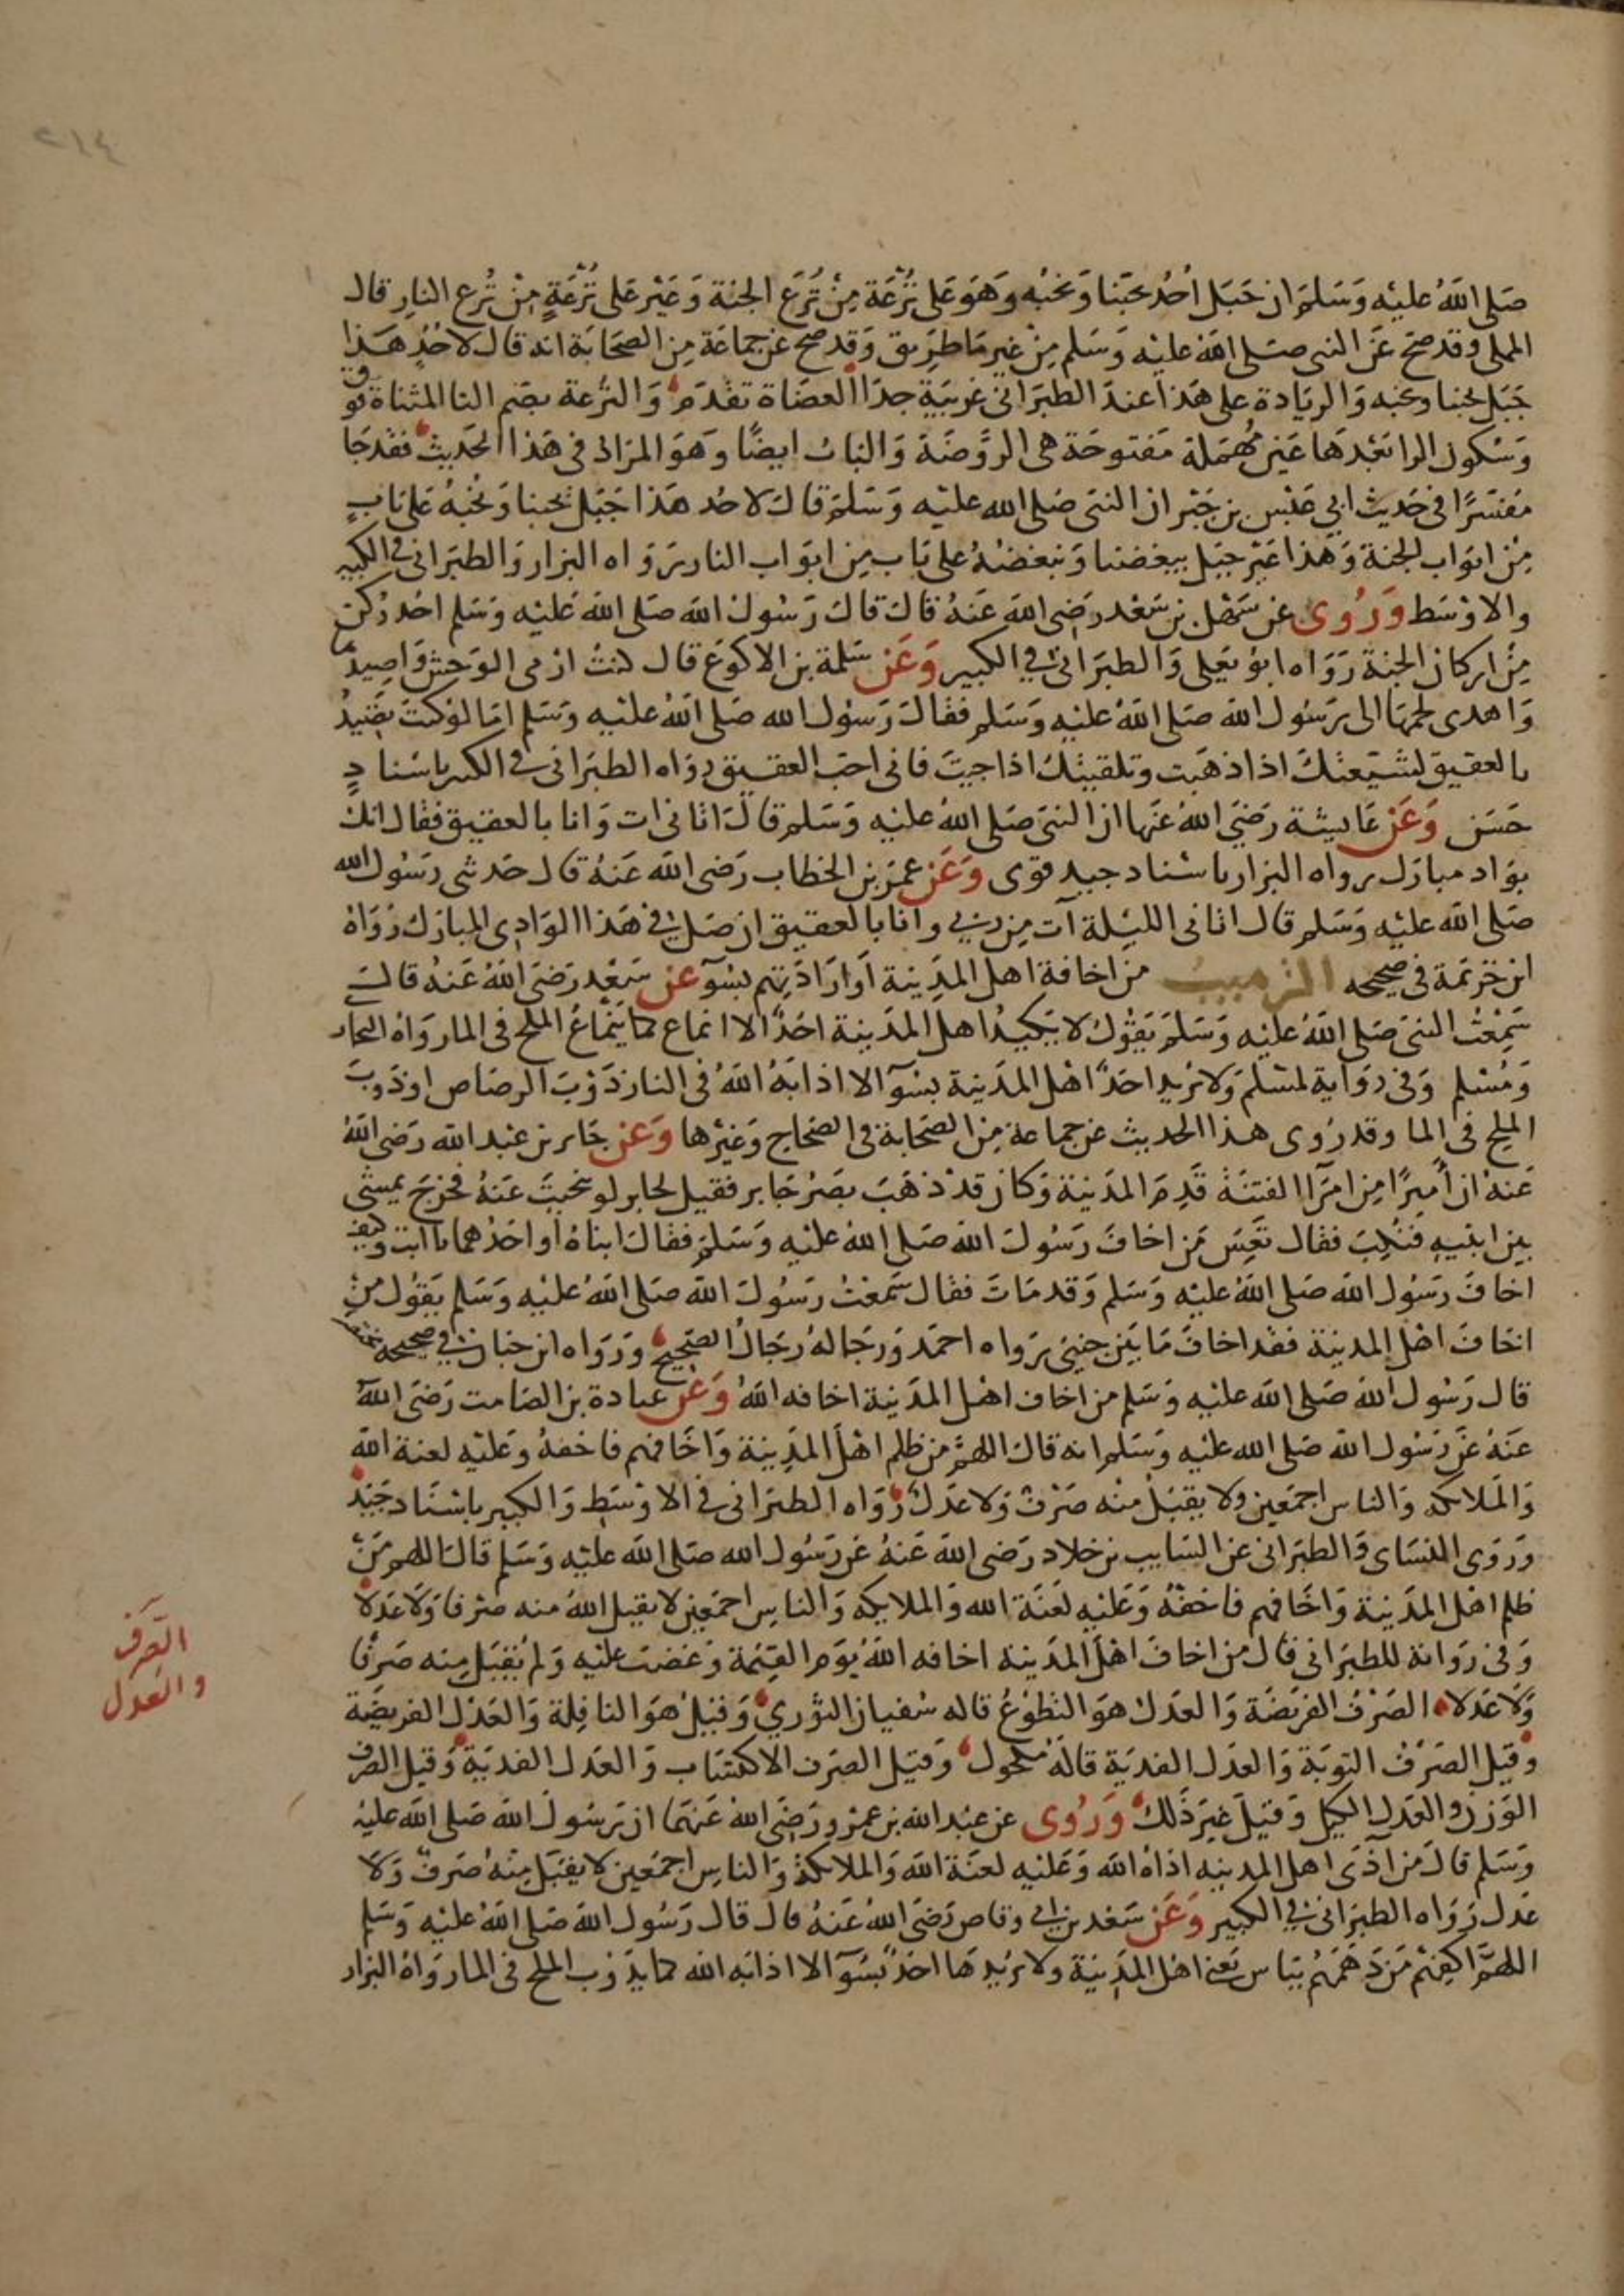 ٢١٤
صَلى اللهُ عليْه وَسَلمَ ان جَبَل أُحُد يحبّنا وَنحبُه وَهوَ عَلى تُرْعَة مِنْ تُرَع الجنة وَعَيْر عَلى تُرْعَةٍ مِنْ تُرع النارِ قال
المملى وقد صَحَّ عَن النبى صَلى الله عليه وَسَلم مِنْ غير مَا طرِيق وَقد صح عن جماعَة مِن الصحَابَة انه قال لاحُد هَذا
جَبَل يحبنا ونحبه وَالزيَادة على هَذا عندَ الطبَرانى غريبَة جدًا العضَاة تقدَم وَالتُرعة بضم التا المثناة فوق
وَسْكون الرا بَعْدَها عَين مُهمَلة مَفتوحَة هى الرَّوضَة وَالبَاب ايضًا وَهوَ المرَاد فى هَذا الحَديث فقد جَا
مُفَسَّرًا فى حَديث ابي عَبْس بن جَبْر ان النبى صَلى الله عليْه وَسَلمَ قال لاحُد هَذا جَبَل يحبنا وَنحُبهُ عَلى بَابٍ
مِنْ ابوَاب الجنة وَهذا عَيْر جَبَل يبغضنا وَنبغضهُ على بَاب مِن ابوَاب النار رَوَاه البزار وَالطبَرانى فى الكبير
والاوْسَط وَرُوى عن سَهْل بن سَعْد رَضى الله عَنهُ قال قال رَسُول الله صَلى الله عَليْه وَسَلم احُد رُكن
مِنْ اركان الجنة رَوَاه ابوُ يعَلى وَالطبَرانى فى الكبير وَعَن سَلمة بن الاكوَع قال كنتُ ارْمى الوَحش وَاصيدُ
وَاهدى لحمهَا الى رَسُول الله صَلى اللهُ عليْه وَسَلم فقال رَسوُل الله صَلى اللهُ عليْه وَسَلم امَا لوْ كنتَ تصَيدُ
بالعقيق لشيّعتكَ اذا ذهَبت وتلقيتكَ اذا جيتَ فانى احبّ العقيق رَوَاه الطبَرانى فى الكبير باسْنادٍ
حَسَن وَعَن عَايشة رَضيَ اللهُ عَنهَا ان النبى صَلى اللهُ عليْه وَسَلم قال اتانى ات وَانا بالعقيق فقال انك
بوَاد مبارَك رواه البزار باسْناد جيد قوى وَعَن عمَر بن الخطاب رَضى الله عَنهُ قال حَدثنى رَسُول الله
صَلى الله عليْه وَسَلم قال اتانى الليْلة آت مِن ربي وانا بالعقيق ان صَل في هَذا الوَادِى المبارَك رَوَاهُ
ابن خزيمَة فى صحيحه الترهيب من اخافة اهل المدِينة أوارَادَتهم بسُوٓ عن سَعْد رَضيَ اللهُ عَنهُ قال
سَمِعْتُ النبىَ صَلى اللهُ عليْه وَسَلمَ يَقوُل لا يَكيدُ اهل المدَينة احَدٌ الا انماع كما يَنمَاعُ الملح فى الما روَاهُ البخار
وَمُسْلم وَفى رِوَاية لمسْلم وَلا يُريد احَدٌ اهْل المدَينة بسُوٓ الا اذابَهُ اللهُ فى النار ذوْبَ الرصَاص اوذوبَ
الملح فى الما وقد رُوى هذا الحديث عن جماعة مِن الصحَابة فى الصحَاح وَغيْرها وَعَن جَابر بن عبْد الله رَضى اللهُ
عَنهُ ان أميرًا مِن امرَآ الفتنة قَدِمَ المدَينة وَكان قدْ ذهَبَ بصَرُ جَابر فقيل لجابر لو تنحيتَ عَنهُ فخرَجَ يَمشى
بيْن ابنيهِ فنكِبَ فقال تعِسَ مَن اخافَ رَسُولَ الله صَلى اللهُ عليْه وَسَلم فقالَ ابناهُ أو احَدُهما يا ابَت وكيف
اخافَ رَسُولَ الله صَلى اللهُ عليْه وَسَلم وَقد مَاتَ فقال سَمعتُ رَسُولَ الله صَلى اللهُ عليْه وَسَلم يَقوُل مَن
اخَافَ اهْل المدينة فقد اخافَ مَا بَيْن جنبىَّ رَوَاه احمَد وَرجَاله رجَالُ الصَّحيح وَرَوَاه ابن حبان فى صحيحه مختصرا
قال رَسُول الله صَلى الله عليْه وَسَلم من اخاف اهْل المدَينة اخافه اللهُ وَعَن عبادة بن الصَامت رَضى اللهُ
عَنهُ عَن رَسُول الله صَلى الله عليْه وَسَلم انه قال اللهمَّ من ظلم اهْل المدِينة وَاخَافهم فاخفهُ وَعَليْه لعنة الله
وَالملايكه وَالناس اجمَعين ولا يقبَلُ منْه صَرْفٌ وَلا عَدلٌ رَوَاه الطبَرانى فى الاوْسَط وَالكبير باسْنَاد جَيّد
وَرَوى النسَاى وَالطبَرانى عن السَايب بن خلاد رَضى الله عَنهُ عَن رَسُول الله صَلى الله عليْه وَسَلم قال اللهم مَنْ
ظلم اهْل المدَينة وَاخَافهم فاخفْهُ وَعَليْه لعَنَة الله وَالملايكه وَالناس اجمَعين لا يقبل اللهُ منه صَرْفا وَلا عَدلا
وَفى رَوَاية للطبَرانى قال من اخافَ اهْل المدَينه اخافه اللهُ يوَم القيمَة وَغضبَ عليْه وَلم يُقبَل مِنه صَرْفا
وَلا عَدلا الصَرْفُ الفريْضَة وَالعدَل هوَ التطوُعُ قاله سُفيان الثوْري وَقيْل هوَ النافِلة وَالعَدل الفريضَة
وَقيل الصَرْفُ التوبَة وَالعدَل الفدية قالهُ مكحُول وَقيل الصَرف الاكتسَاب وَالعدَل الفديَة وَقيل الصَرف
الوَزن والعَدل الكيل وَقيلَ غَيرَ ذَلك وَرُوى عن عبْد الله بن عمْرو رَضى اللهُ عَنهَما ان رَسُولَ الله صَلى الله عليْه
وَسَلم قال مَن آذى اهل المدينه اذاهُ الله وَعَليْه لعنَة الله وَالملايكة وَالناس اجمَعين لا يقبَل مِنْهُ صَرفٌ وَلا
عدل رَوَاه الطبرَانى فى الكبير وَعَن سَعْد بن ابي وقاص رَضى اللهُ عَنهُ قال قال رَسُول الله صَلى اللهُ عليْه وَسَلم
اللهمَّ اكفِهمْ مَن دَهَمَهُم ببَاس يَعنى اهل المدِينة ولا يُريدهَا احَدٌ بسُوٓ الا اذابَه الله كما يَذوب الملح فى الما روَاهُ البزار
الصَرف
والعَدل